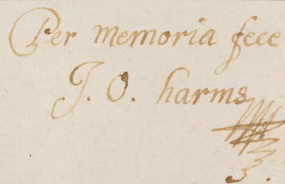 Per memoria fece
J. O. harms
3.